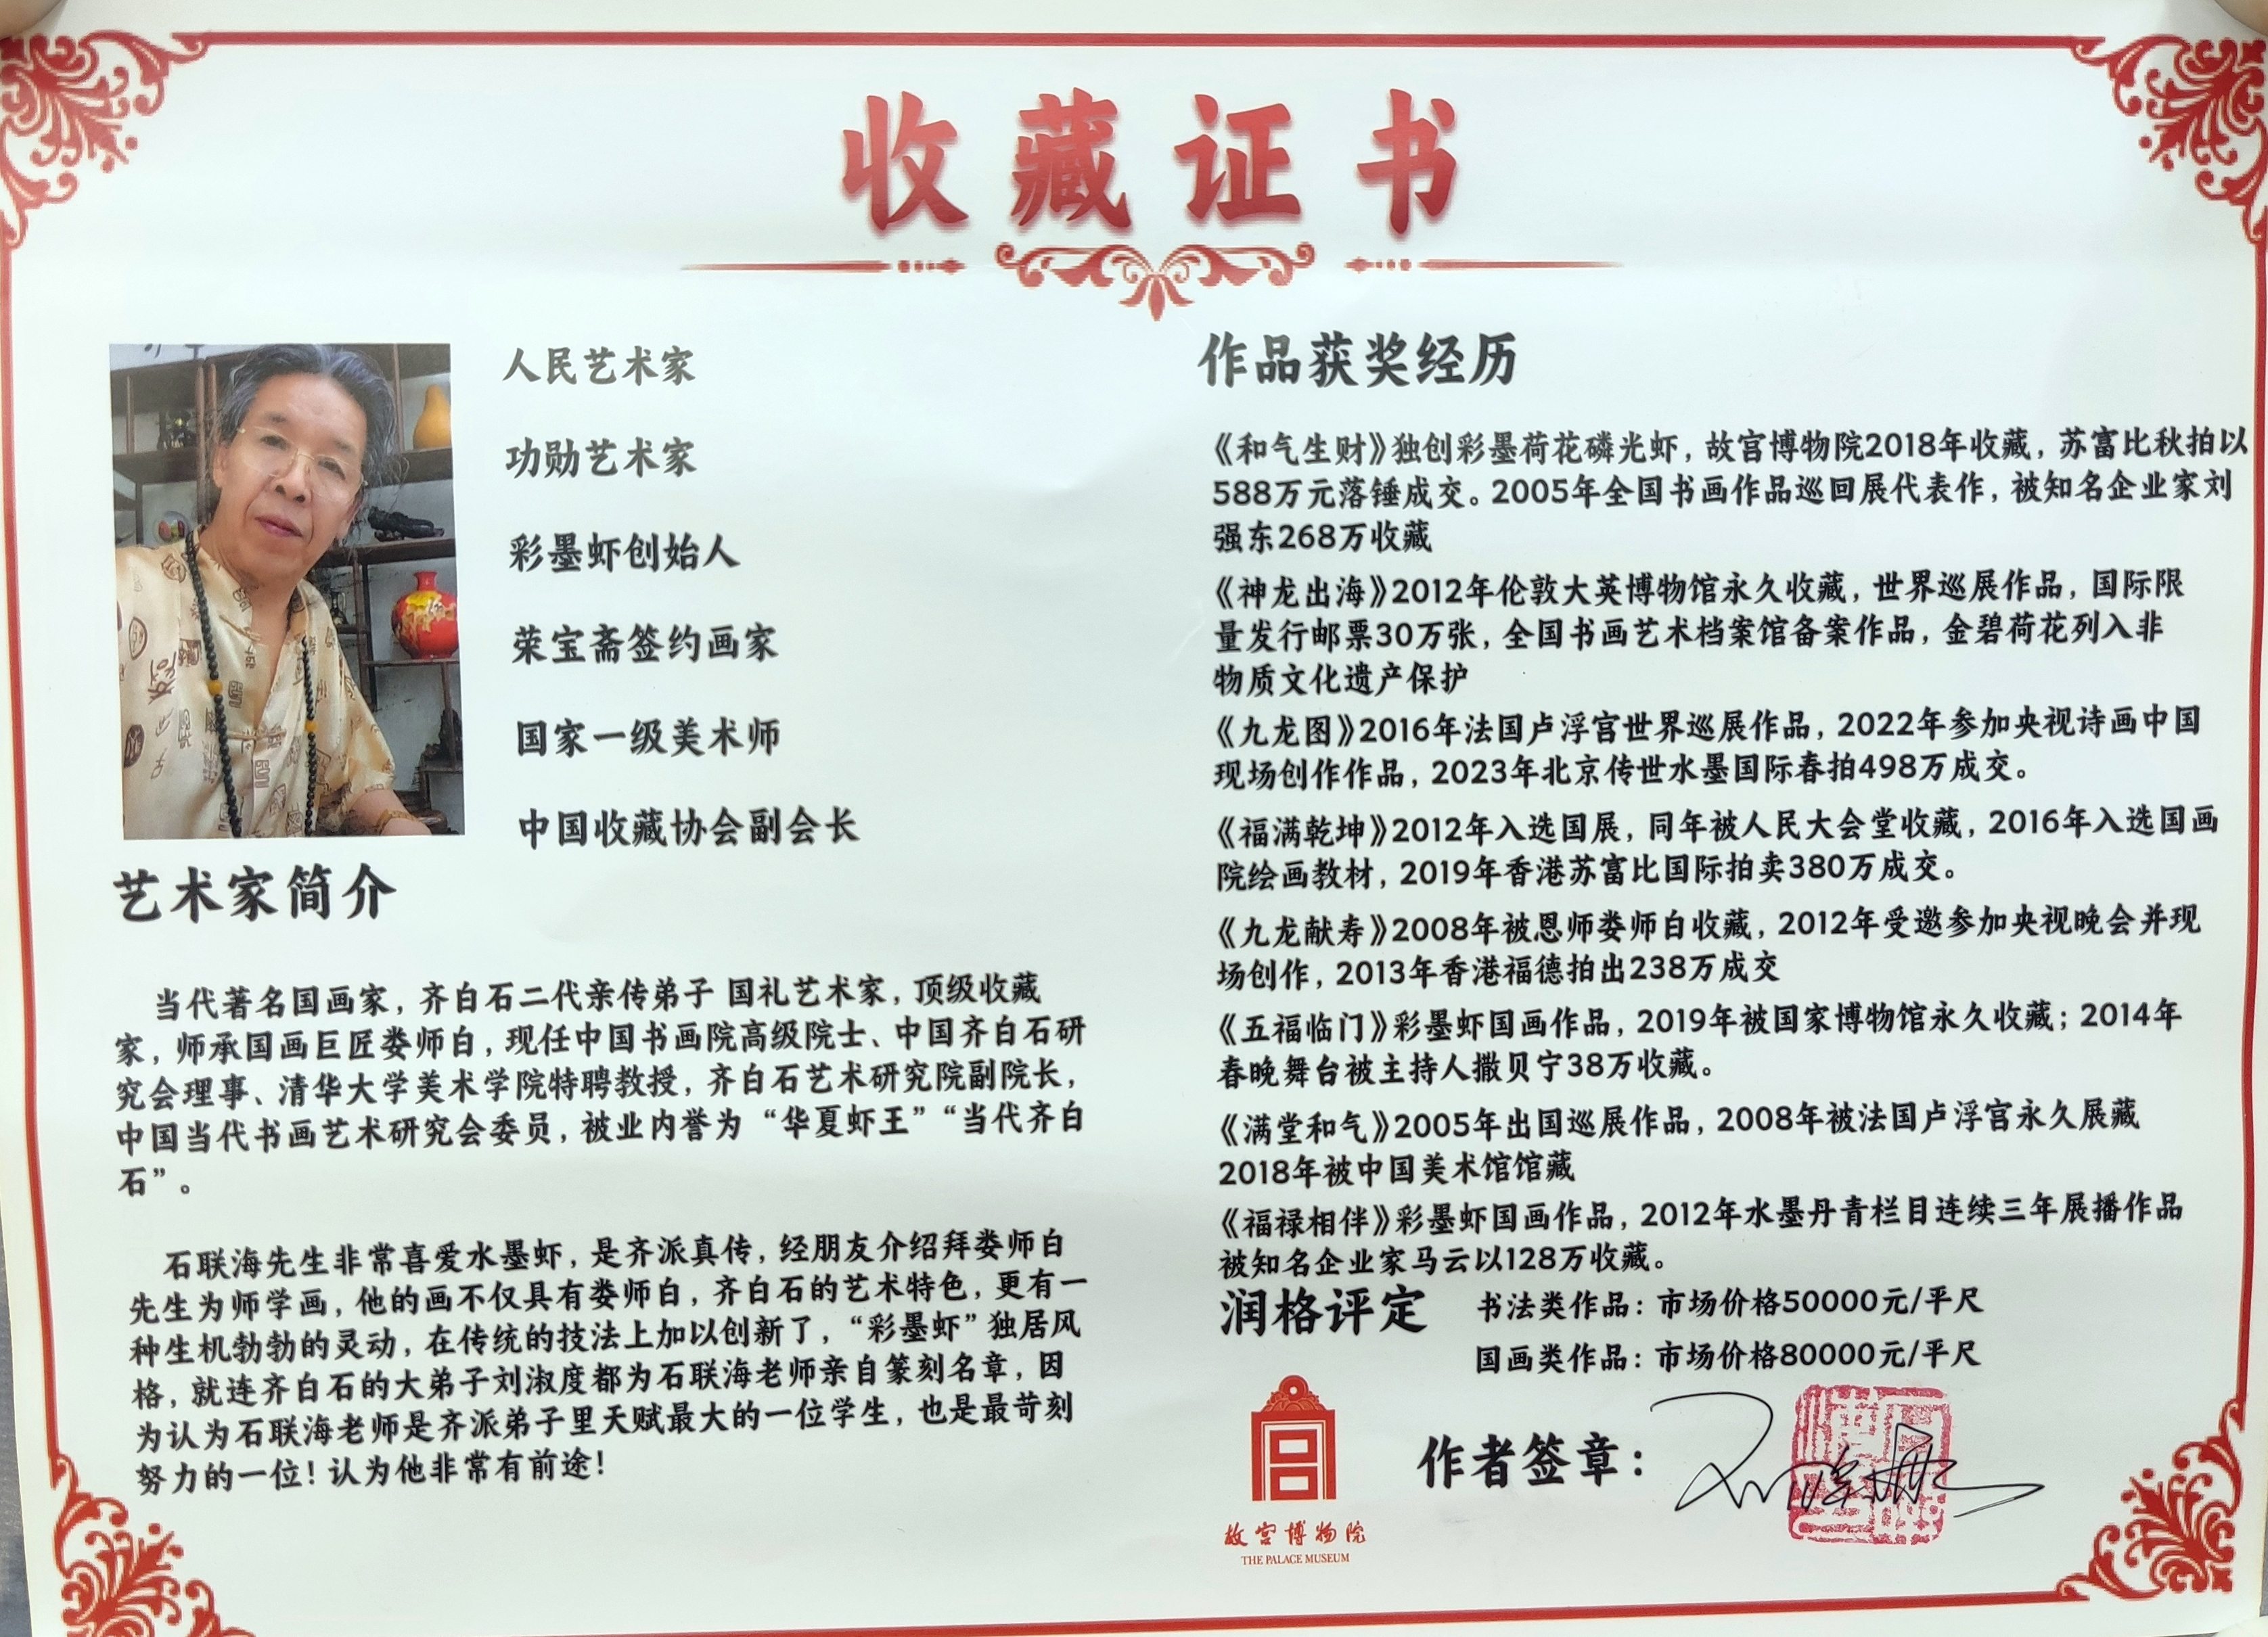 收藏证书
人民艺术家
功勋艺术家
彩墨虾创始人
荣宝斋签约画家
国家一级美术师
中国收藏协会副会长
艺术家简介
当代著名国画家，齐白石二代亲传弟子 国礼艺术家，顶级收藏
家，师承国画巨匠娄师白，现任中国书画院高级院士、中国齐白石研
究会理事、清华大学美术学院特聘教授，齐白石艺术研究院副院长，
中国当代书画艺术研究会委员，被业内誉为“华夏虾王”“当代齐白
石”。
石联海先生非常喜爱水墨虾，是齐派真传，经朋友介绍拜娄师白
先生为师学画，他的画不仅具有娄师白，齐白石的艺术特色，更有一
种生机勃勃的灵动，在传统的技法上加以创新了，“彩墨虾”独居风
格，就连齐白石的大弟子刘淑度都为石联海老师亲自篆刻名章，因
为认为石联海老师是齐派弟子里天赋最大的一位学生，也是最苛刻
努力的一位！认为他非常有前途！
作品获奖经历
《和气生财》独创彩墨荷花磷光虾，故宫博物院2018年收藏，苏富比秋拍以
588万元落锤成交。2005年全国书画作品巡回展代表作，被知名企业家刘
强东268万收藏
《神龙出海》2012年伦敦大英博物馆永久收藏，世界巡展作品，国际限
量发行邮票30万张，全国书画艺术档案馆备案作品，金碧荷花列入非
物质文化遗产保护
《九龙图》2016年法国卢浮宫世界巡展作品，2022年参加央视诗画中国
现场创作作品，2023年北京传世水墨国际春拍498万成交。
《福满乾坤》2012年入选国展，同年被人民大会堂收藏，2016年入选国画
院绘画教材，2019年香港苏富比国际拍卖380万成交。
《九龙献寿》2008年被恩师娄师白收藏，2012年受邀参加央视晚会并现
场创作，2013年香港福德拍出238万成交
《五福临门》彩墨虾国画作品，2019年被国家博物馆永久收藏；2014年
春晚舞台被主持人撒贝宁38万收藏。
《满堂和气》2005年出国巡展作品，2008年被法国卢浮宫永久展藏
2018年被中国美术馆馆藏
《福禄相伴》彩墨虾国画作品，2012年水墨丹青栏目连续三年展播作品
被知名企业家马云以128万收藏。
润格评定 书法类作品：市场价格50000元/平尺
国画类作品：市场价格80000元/平尺
作者签章：
故宫博物院
THE PALACE MUSEUM